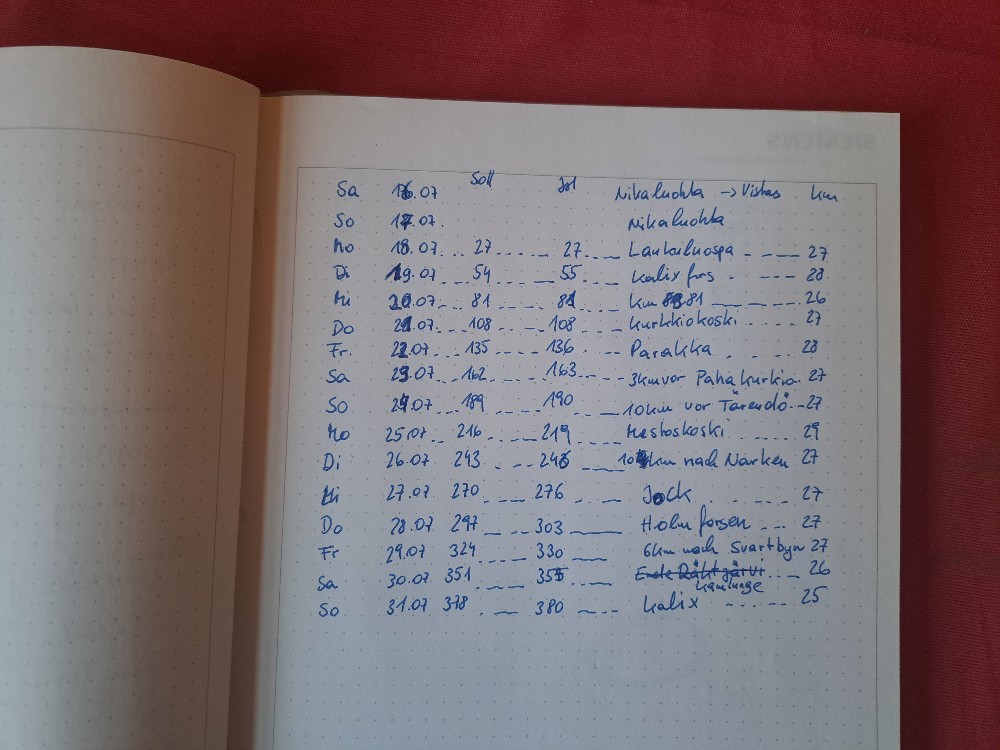 SIEMENS
Soll Ist
Sa 16.07 Nikaluokta -> Vistas km
So 17.07. Nikaluokta
Mo 18.07. .. 27 ---- 27 .-- Lautakuospa - -- - 27
Di 19.07 --- 54 --- 55 --- Kalix fors - --- 28
Mi 20.07 --- 81 --- 81 --- km 81 ------ 26
Do 21.07. --- 108 --- 108 --- Kurkkiokoski .... 27
Fr. 22.07 --- 135 --- 136 --- Parakka . . . . 28
Sa 23.07 --- 162 --- 163 --- 3km vor Pahakurkio. 27
So 24.07 --- 189 --- 190 --- 10km vor Tärendö -- 27
Mo 25.07 -- 216 --- 219 --- Mestoskoski . - - . 29
Di 26.07 243 --- 246 --- 10 km nach Narken 27
Mi 27.07 270 --- 276 --- Jock . - - . 27
Do 28.07 297 --- 303 ---- Holmforsen --- 27
Fr 29.07 324 --- 330 --- 6km nach Svartbyn 27
Sa 30.07 351 --- 355 --- Ende Räktjärvi .. - 26
Kamlunge
So 31.07 378 --- 380 --- Kalix - - - - - 25